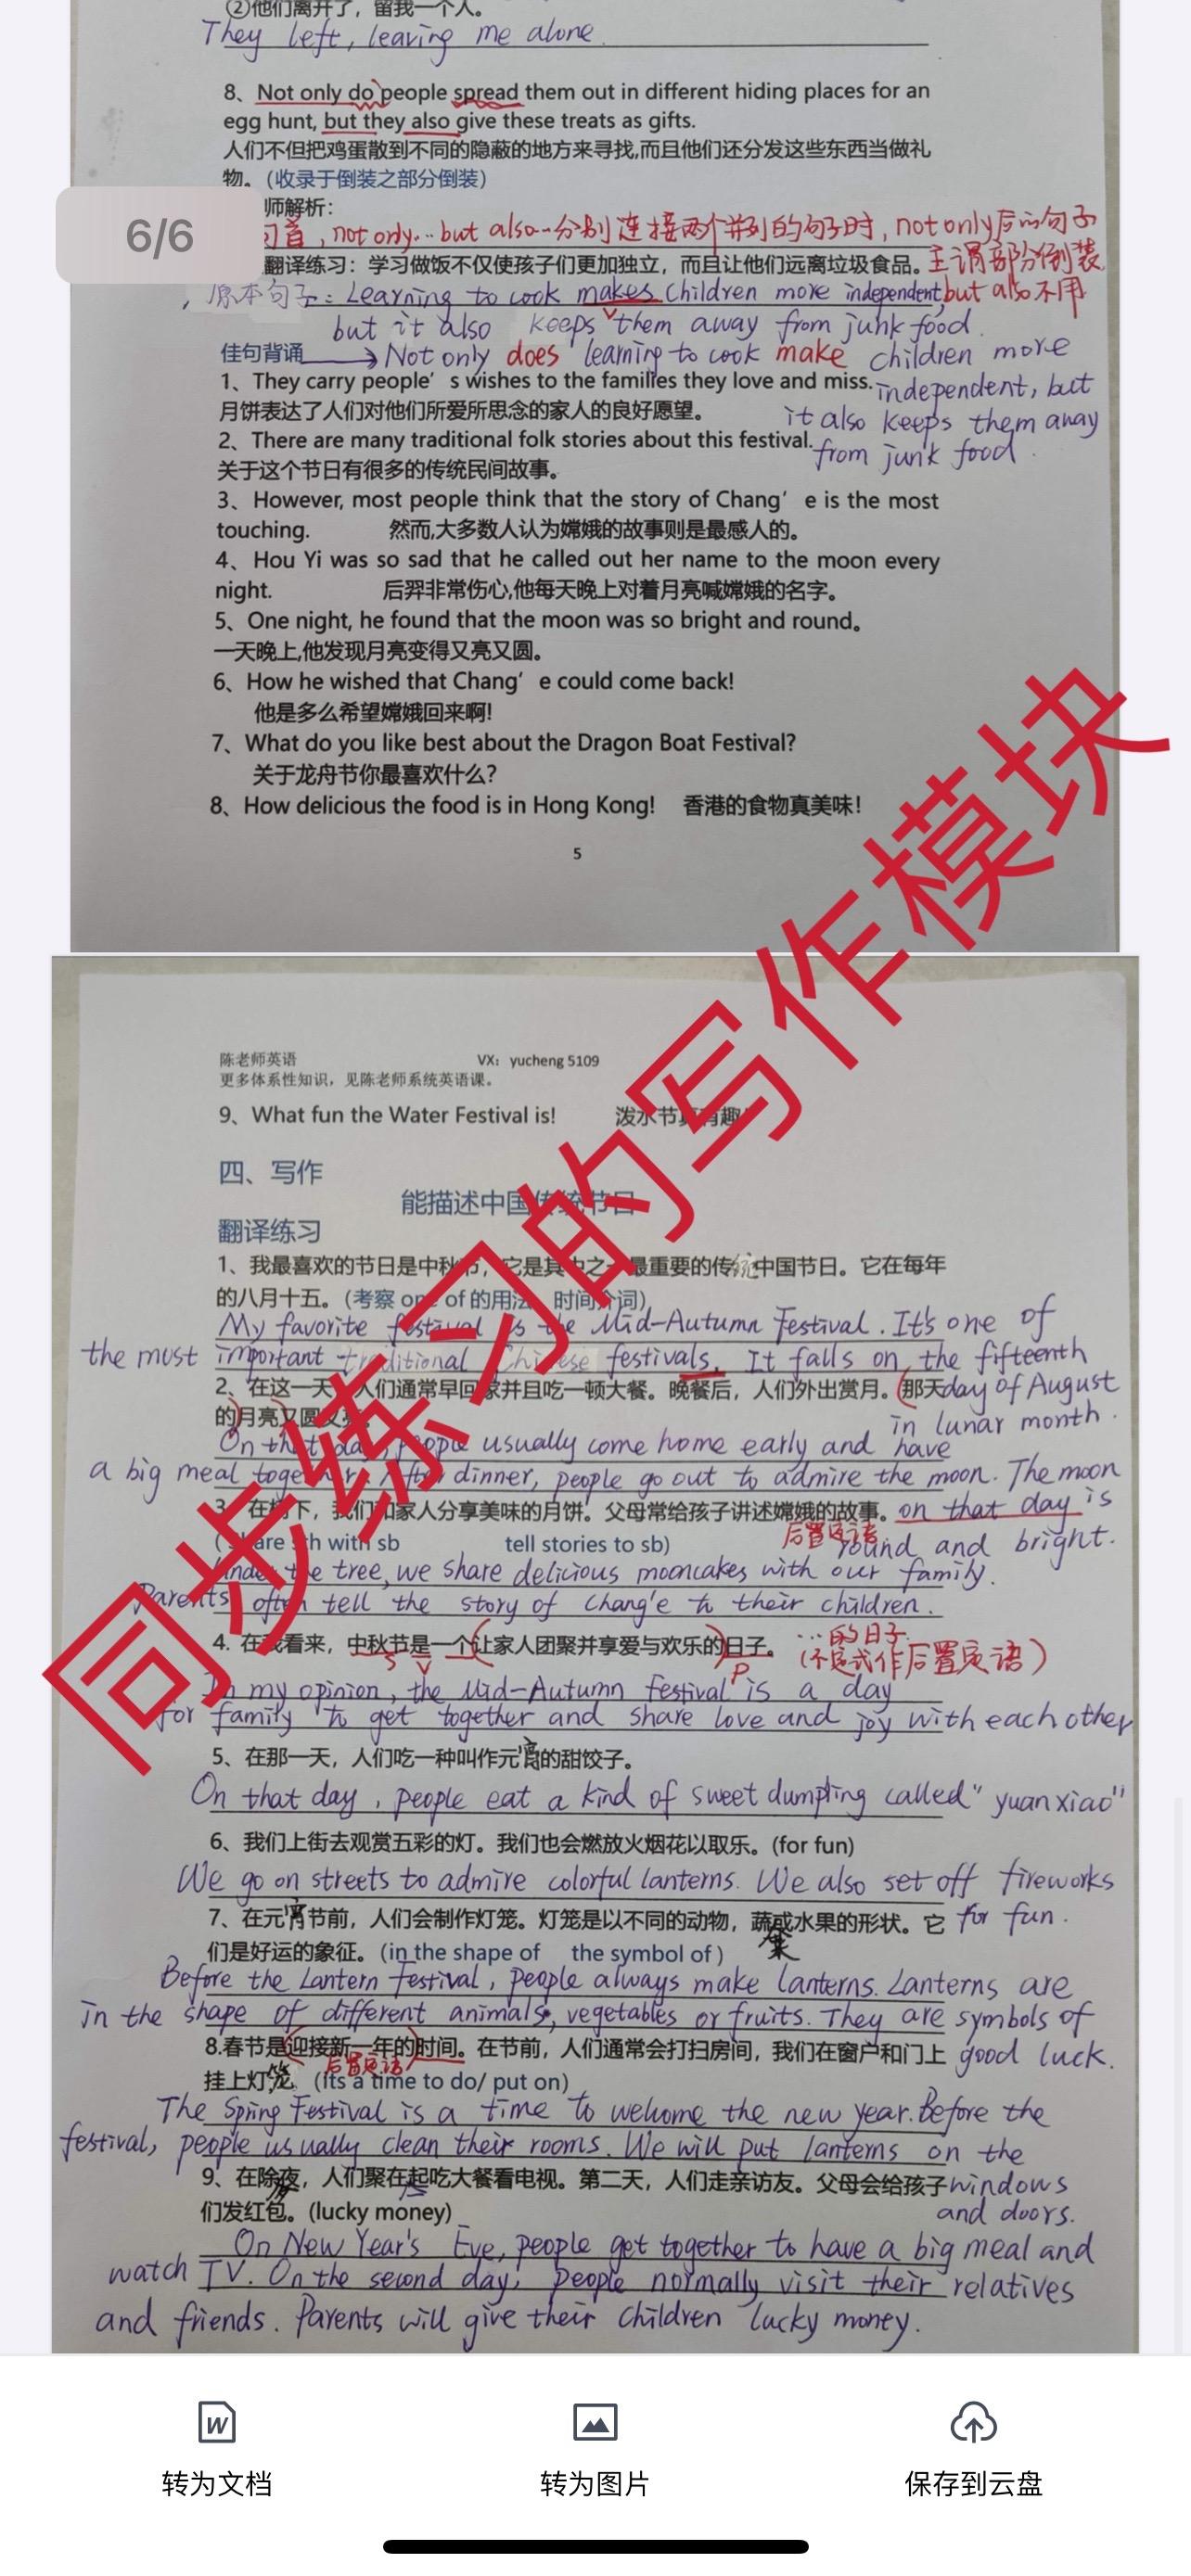 ②他们离开了，留我一个人。
They left, leaving me alone.
8、Not only do people spread them out in different hiding places for an
egg hunt, but they also give these treats as gifts.
人们不但把鸡蛋散到不同的隐蔽的地方来寻找,而且他们还分发这些东西当做礼
物。（收录于倒装之部分倒装）
6/6
师解析：
句首，not only...but also...分别连接两个并列的句子时，not only后的句子
主谓部分倒装，
翻译练习：学习做饭不仅使孩子们更加独立，而且让他们远离垃圾食品。
but also不用
原本句子：Learning to cook makes children more independent,
but it also keeps them away from junk food.
佳句背诵
Not only does learning to cook make children more
independent, but
it also keeps them away
from junk food.
1、They carry people's wishes to the families they love and miss.
月饼表达了人们对他们所爱所思念的家人的良好愿望。
2、There are many traditional folk stories about this festival.
关于这个节日有很多的传统民间故事。
3、However, most people think that the story of Chang'e is the most
touching. 然而,大多数人认为嫦娥的故事则是最感人的。
4、Hou Yi was so sad that he called out her name to the moon every
night. 后羿非常伤心,他每天晚上对着月亮喊嫦娥的名字。
5、One night, he found that the moon was so bright and round。
一天晚上,他发现月亮变得又亮又圆。
6、How he wished that Chang'e could come back!
他是多么希望嫦娥回来啊!
7、What do you like best about the Dragon Boat Festival?
关于龙舟节你最喜欢什么?
8、How delicious the food is in Hong Kong! 香港的食物真美味!
5
同步练习的写作模块
陈老师英语 VX：yucheng 5109
更多体系性知识，见陈老师系统英语课。
9、What fun the Water Festival is! 泼水节真有趣
四、写作
能描述中国传统节日
翻译练习
1、我最喜欢的节日是中秋节，它是其中之一最重要的传统中国节日。它在每年
的八月十五。（考察 one of 的用法 时间介词）
My favorite festival is the Mid-Autumn Festival. It's one of
the most important traditional Chinese festivals. It falls on the fifteenth
day of August
in lunar month.
2、在这一天，人们通常早回家并且吃一顿大餐。晚餐后，人们外出赏月。（那天
的）月亮又圆又亮。
On that day, people usually come home early and have
a big meal together. After dinner, people go out to admire the moon. The moon
on that day is
后置定语
round and bright.
3、在树下，我们和家人分享美味的月饼。父母常给孩子讲述嫦娥的故事。
( share sth with sb tell stories to sb)
Under the tree, we share delicious mooncakes with our family.
Parents often tell the story of Chang'e to their children.
4. 在我看来，中秋节是一个（让家人团聚并享爱与欢乐的）日子。
...的日子
S V P
（不定式作后置定语）
In my opinion, the Mid-Autumn Festival is a day
for family to get together and share love and joy with each other
5、在那一天，人们吃一种叫作元宵的甜饺子。
On that day, people eat a kind of sweet dumpling called "yuanxiao"
6、我们上街去观赏五彩的灯。我们也会燃放火烟花以取乐。(for fun)
We go on streets to admire colorful lanterns. We also set off fireworks
for fun.
7、在元宵节前，人们会制作灯笼。灯笼是以不同的动物，蔬菜或水果的形状。它
们是好运的象征。(in the shape of the symbol of )
Before the Lantern Festival, people always make lanterns. Lanterns are
in the shape of different animals, vegetables or fruits. They are symbols of
good luck.
8.春节是（迎接新一年的）时间。在节前，人们通常会打扫房间，我们在窗户和门上
后置定语
挂上灯笼。(Its a time to do/ put on)
The Spring Festival is a time to welcome the new year. Before the
festival, people usually clean their rooms. We will put lanterns on the
windows
and doors.
9、在除夜，人们聚在起吃大餐看电视。第二天，人们走亲访友。父母会给孩子
们发红包。(lucky money)
On New Year's Eve, people get together to have a big meal and
watch TV. On the second day, people normally visit their relatives
and friends. Parents will give their children lucky money.
转为文档 转为图片 保存到云盘